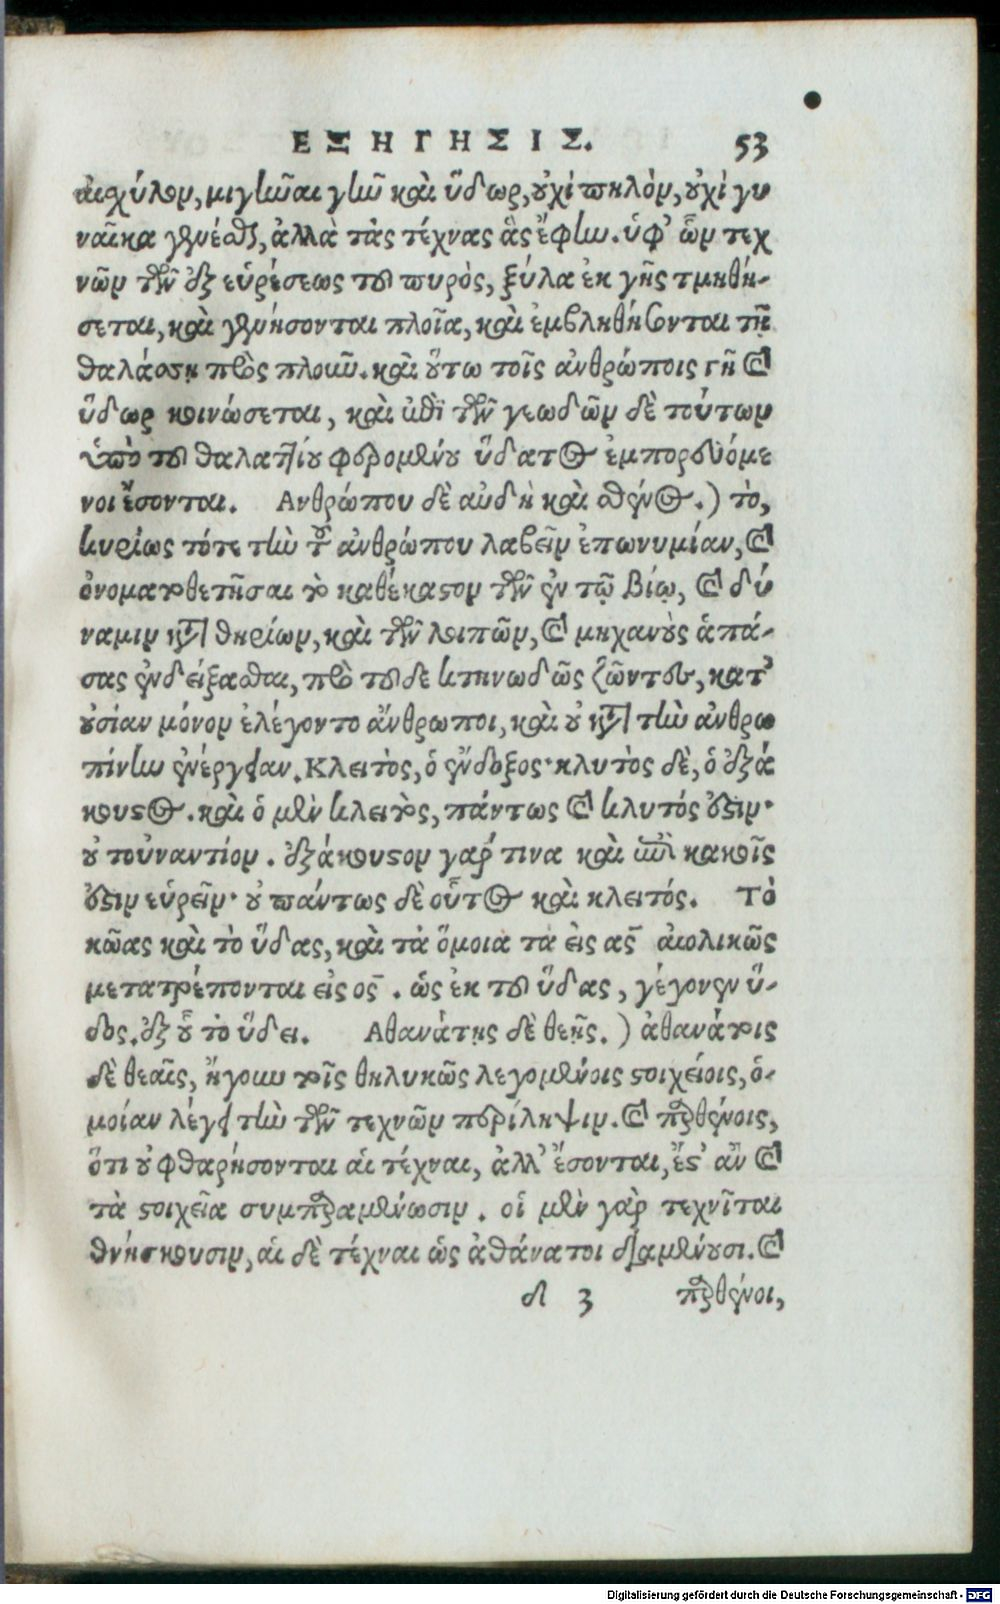 ΕΞΗΓΗΣΙΣ. 53
αιχύλον, μιγνῶαι γῆν καὶ ὕδωρ, οὐχὶ πηλὸν, οὐχὶ γυ
ναῖκα γενέσθαι, ἀλλὰ τὰς τέχνας ἃς ἔφην. ὑφ' ὧν τεχ
νῶν τῶν ἐξ εὑρέσεως τοῦ πυρὸς, ξύλα ἐκ γῆς τμηθή-
σεται, καὶ γενήσονται πλοῖα, καὶ ἐμβληθήσονται τῇ
θαλάσσῃ πρὸς πλοῦν. καὶ οὕτω τοῖς ἀνθρώποις γῆ καὶ
ὕδωρ κοινώσεται, καὶ ἐπὶ τῶν γεωδῶν δὲ τούτων
ὑπὸ τοῦ θαλαττίου φερομένου ὕδατος ἐμπορευόμε
νοι ἔσονται. Ανθρώπου δὲ αὐδὴ καὶ σθένος.) τὸ,
κυρίως τότε τὴν τοῦ ἀνθρώπου λαβεῖν ἐπωνυμίαν, καὶ
ὀνοματοθετῆσαι τὸ καθέκαστον τῶν ἐν τῷ βίῳ, καὶ δύ
ναμιν κατὰ θηρίων, καὶ τῶν λοιπῶν, καὶ μηχανὰς ἁπά-
σας ἐνδείξασθαι, πρὸ τοῦ δὲ κτηνωδῶς ζῶντες, κατ'
οὐσίαν μόνον ἐλέγοντο ἄνθρωποι, καὶ οὐ κατὰ τὴν ἀνθρω
πίνην ἐνέργειαν. Κλειτὸς, ὁ ἔνδοξος· κλυτὸς δὲ, ὁ ἐξά
κουστος. καὶ ὁ μὲν κλειτὸς, πάντως καὶ κλυτός ἐστιν·
οὐ τοὐναντίον. ἐξάκουστον γάρ τινα καὶ ἐπὶ κακοῖς
ἐστιν εὑρεῖν· οὐ πάντως δὲ οὗτος καὶ κλειτός. Τὸ
κῶας καὶ τὸ ὕδας, καὶ τὰ ὅμοια τὰ εἰς ας αἰολικῶς
μετατρέπονται εἰς ος. ὡς ἐκ τοῦ ὕδας, γέγονεν ὕ-
δος. ἐξ οὗ τὸ ὕδει. Αθανάτῃς δὲ θεῇς.) ἀθανάτοις
δὲ θεαῖς, ἤγουν τοῖς θηλυκῶς λεγομένοις στοιχείοις, ὁ-
μοίαν λέγει τὴν τῶν τεχνῶν περίληψιν. καὶ παρθένοις,
ὅτι οὐ φθαρήσονται αἱ τέχναι, ἀλλ' ἔσονται, ἔστ' ἂν καὶ
τὰ στοιχεῖα συμπαραμένωσιν. οἱ μὲν γὰρ τεχνῖται
θνήσκουσιν, αἱ δὲ τέχναι ὡς ἀθάνατοι διαμένουσι. καὶ
d 3 παρθένοι,
Digitalisierung gefördert durch die Deutsche Forschungsgemeinschaft - DFG